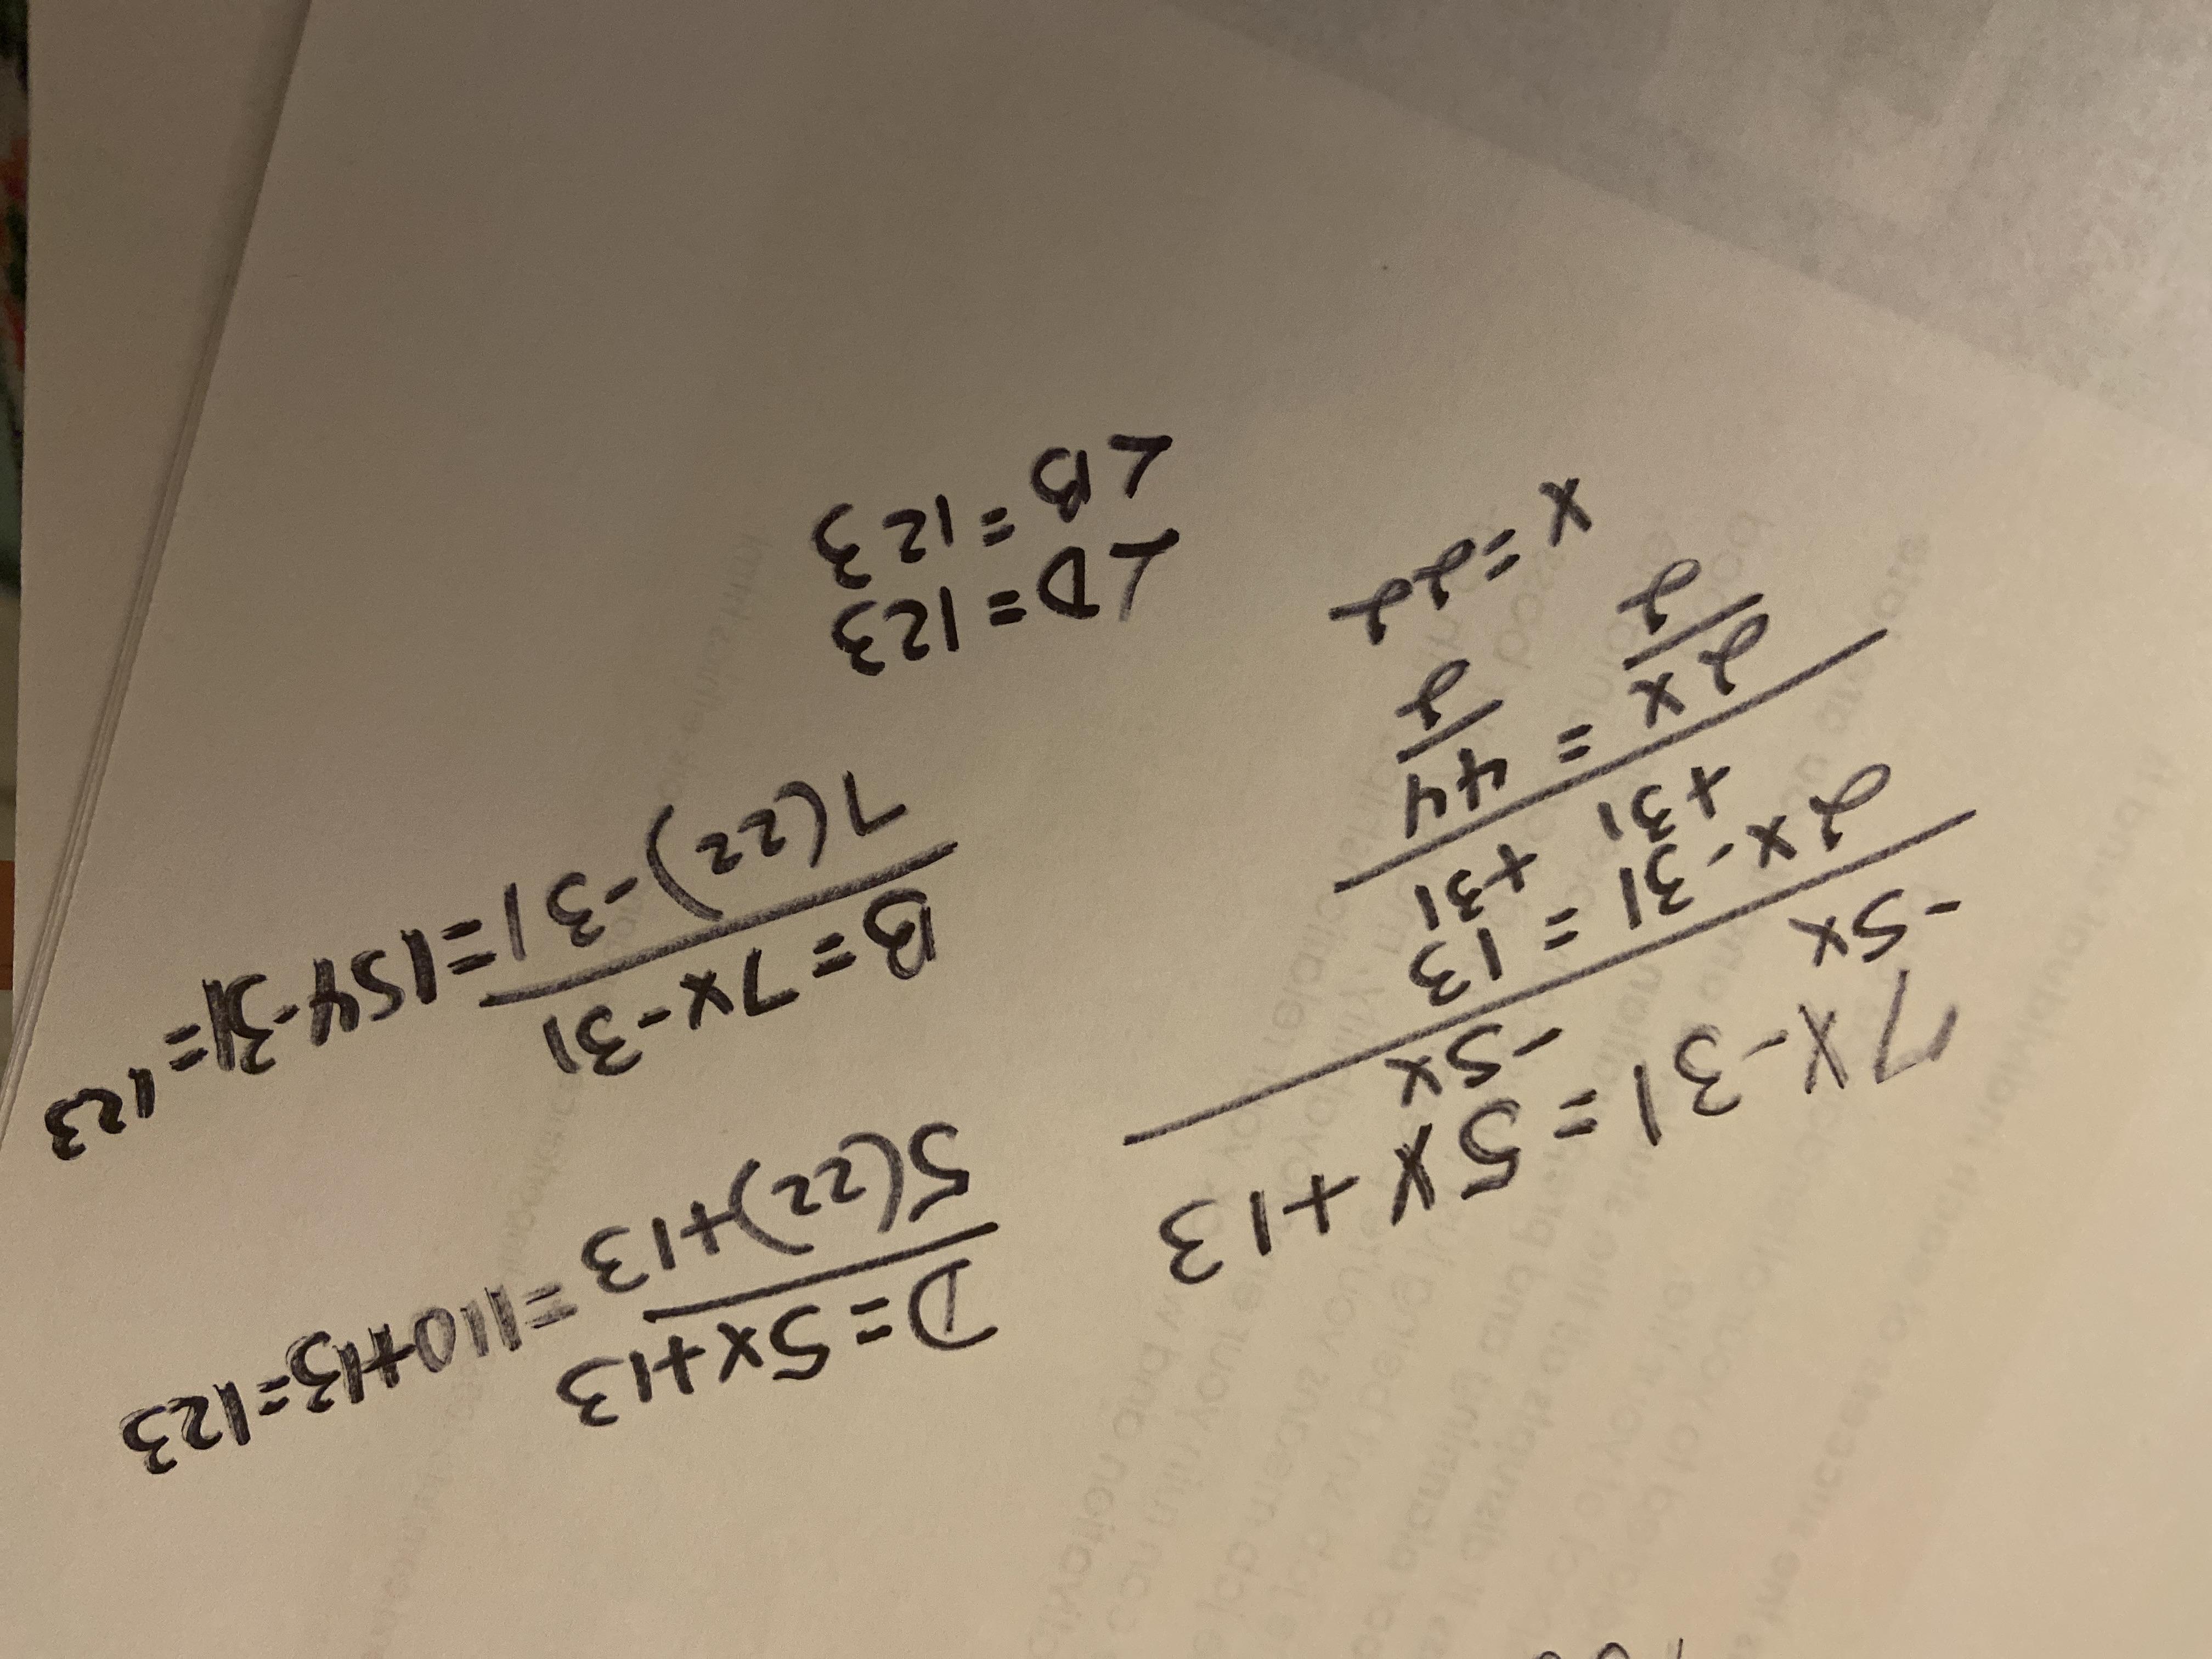 7x-31=5x+13
-5x -5x
2x-31=13
+31 +31
2x = 44
2 2
x=22
D=5x+13
5(22)+13 =110+13=123
B=7x-31
7(22)-31=154-31=123
∠D=123
∠B=123